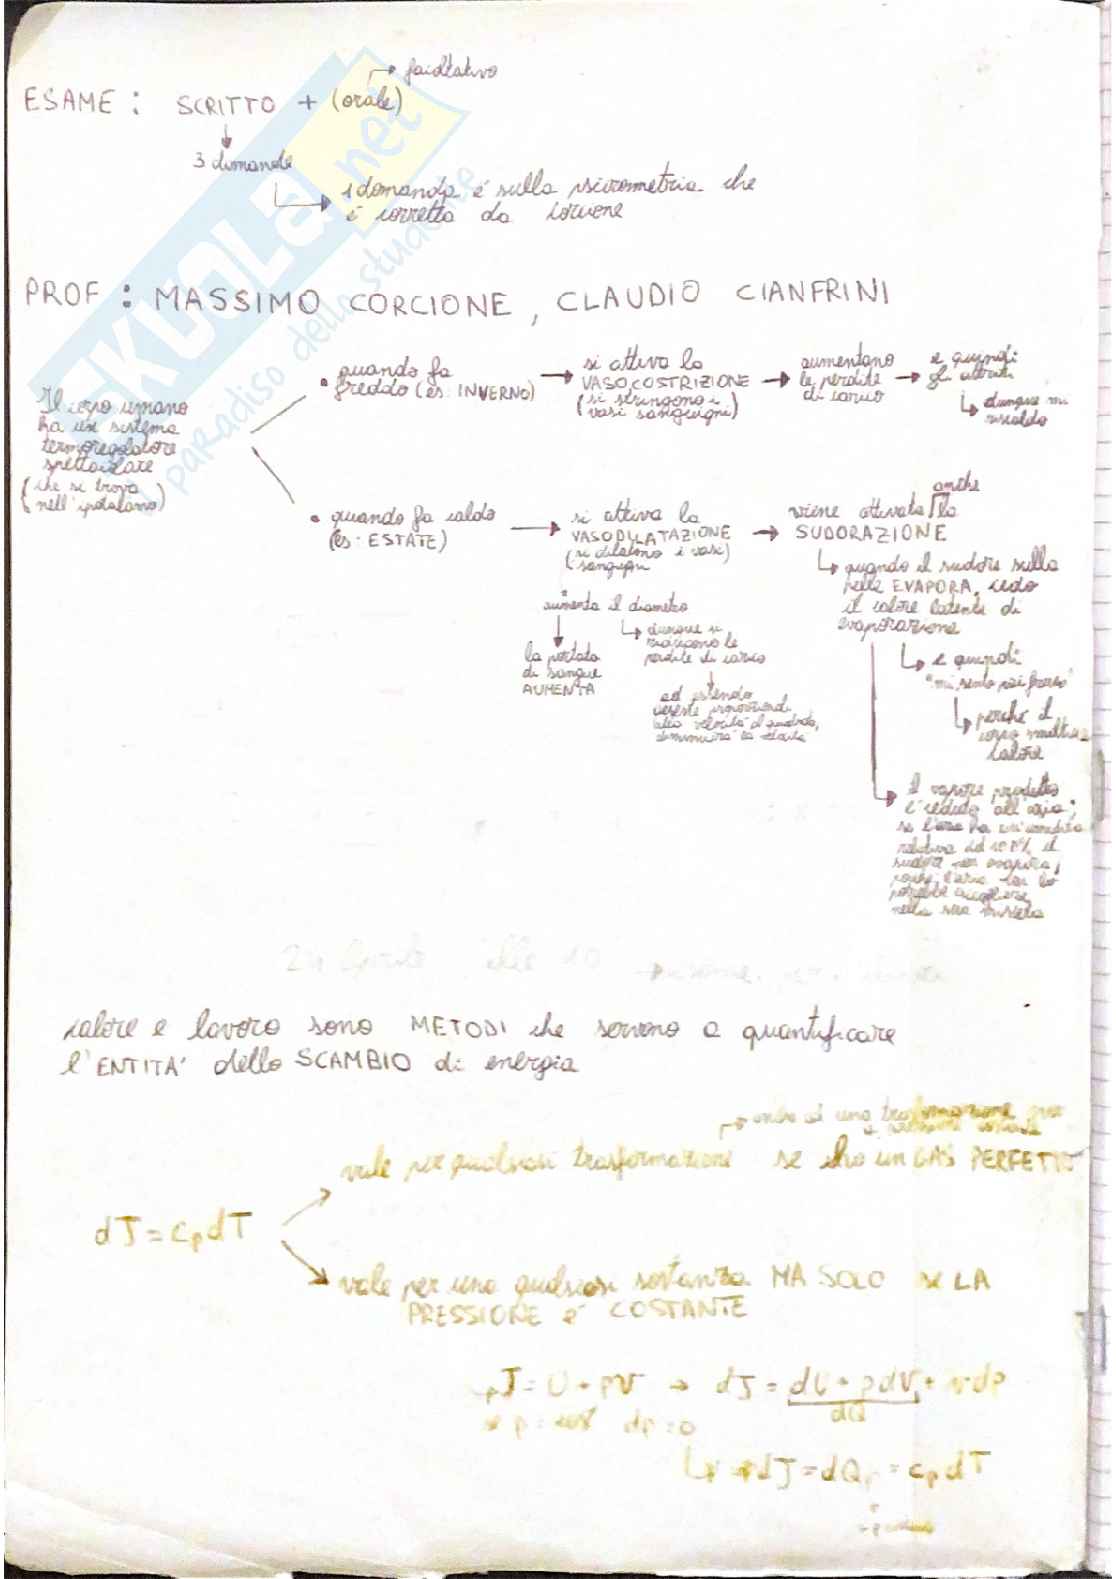 facoltativo
ESAME : SCRITTO + (orale)
3 domande
1 domanda é sulla psicrometria che
é corretta da Corcione
PROF : MASSIMO CORCIONE, CLAUDIO CIANFRINI
Il corpo umano
ha un sistema
termoregolatore
spettacolare
(che si trova
nell'ipotalamo)
• quando fa
freddo (es: INVERNO)
si attiva la
VASOCOSTRIZIONE
(si stringono i
vasi sanguigni)
aumentano
le perdite
di carico
e quindi
gli attriti
dunque mi
riscaldo
• quando fa caldo
(es: ESTATE)
si attiva la
VASODILATAZIONE
(si dilatano i vasi)
sanguigni
aumenta il diametro
la portata
di sangue
AUMENTA
dunque si
riducono le
perdite di carico
ed essendo
queste proporzionali
alla velocità al quadrato,
diminuirà la
anche
viene attivata la
SUDORAZIONE
quando il sudore sulla
pelle EVAPORA, cedo
il calore latente di
evaporazione
e quindi
"mi sento più fresco"
perché il
corpo smaltisce
calore
il vapore prodotto
é ceduto all'aria;
se l'aria ha un'umidità
relativa del 100%, il
sudore non evapora,
poiché l'aria non lo
potrebbe accogliere
nella sua miscela
24 Aprile alle 10
calore e lavoro sono METODI che servono a quantificare
l'ENTITA' dello SCAMBIO di energia
anche ad una trasformazione non
a pressione costante
vale per qualsiasi trasformazione se ho un GAS PERFETTO
dJ = cp dT
vale per una qualsiasi sostanza MA SOLO se LA
PRESSIONE é COSTANTE
J = U + pv → dJ = dU + pdv + vdp
dQ
se p = cost dp = 0
dJ = dQp = cp dT